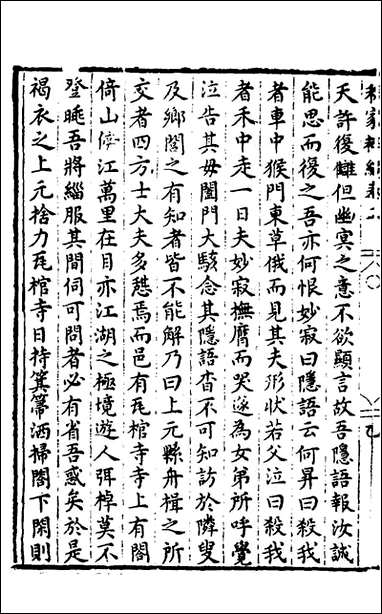 天許復讎但幽冥之意不欲顯言故吾隱語報汝誠
能思而復之吾亦何恨妙寂曰隱語云何昇曰殺我
者車中猴門東草俄而見其夫形狀若父泣曰殺我
者禾中走一日夫妙寂撫膺而哭遂為女弟所呼覺
泣告其毋闔門大駭念其隱語杳不可知訪於隣叟
及鄉閭之有知者皆不能解乃曰上元縣舟楫之所
交者四方士大夫多憇焉而邑有瓦棺寺寺上有閣
倚山俯江萬里在目亦江湖之極境遊人弭棹莫不
登眺吾將緇服其間伺可問者必有省吾惑矣於是
褐衣之上元捨力瓦棺寺日持箕箒洒掃閣下閑則